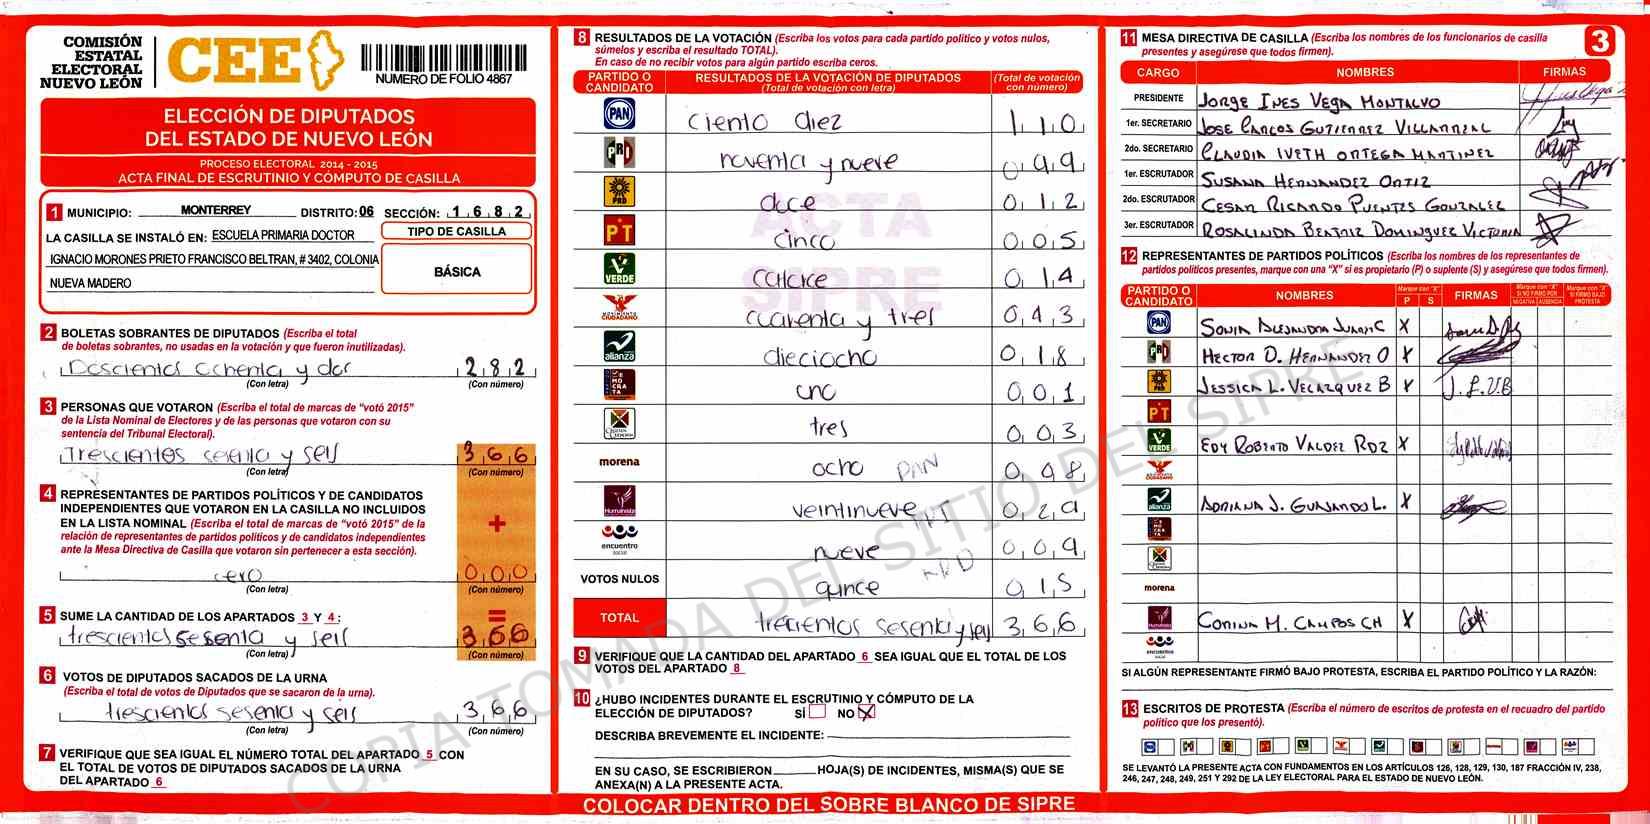 COMISIÓN
ESTATAL
ELECTORAL
NUEVO LEÓN
CEE
NUMERO DE FOLIO 4867
ELECCIÓN DE DIPUTADOS
DEL ESTADO DE NUEVO LEÓN
PROCESO ELECTORAL 2014 - 2015
ACTA FINAL DE ESCRUTINIO Y CÓMPUTO DE CASILLA
1 MUNICIPIO: MONTERREY DISTRITO: 06 SECCIÓN: 1682
LA CASILLA SE INSTALÓ EN: ESCUELA PRIMARIA DOCTOR
IGNACIO MORONES PRIETO FRANCISCO BELTRAN, # 3402, COLONIA
NUEVA MADERO
TIPO DE CASILLA
BÁSICA
2 BOLETAS SOBRANTES DE DIPUTADOS (Escriba el total
de boletas sobrantes, no usadas en la votación y que fueron inutilizadas).
Doscientos ochenta y dos 282
(Con letra) (Con número)
3 PERSONAS QUE VOTARON (Escriba el total de marcas de "votó 2015"
de la Lista Nominal de Electores y de las personas que votaron con su
sentencia del Tribunal Electoral).
Trescientos sesenta y seis 366
(Con letra) (Con número)
4 REPRESENTANTES DE PARTIDOS POLÍTICOS Y DE CANDIDATOS
INDEPENDIENTES QUE VOTARON EN LA CASILLA NO INCLUIDOS
EN LA LISTA NOMINAL (Escriba el total de marcas de "votó 2015" de la
relación de representantes de partidos políticos y de candidatos independientes
ante la Mesa Directiva de Casilla que votaron sin pertenecer a esta sección).
+
cero 000
(Con letra) (Con número)
=
5 SUME LA CANTIDAD DE LOS APARTADOS 3 Y 4:
trescientos sesenta y seis 366
(Con letra) (Con número)
6 VOTOS DE DIPUTADOS SACADOS DE LA URNA
(Escriba el total de votos de Diputados que se sacaron de la urna).
trescientos sesenta y seis 366
(Con letra) (Con número)
7 VERIFIQUE QUE SEA IGUAL EL NÚMERO TOTAL DEL APARTADO 5 CON
EL TOTAL DE VOTOS DE DIPUTADOS SACADOS DE LA URNA
DEL APARTADO 6
8 RESULTADOS DE LA VOTACIÓN (Escriba los votos para cada partido político y votos nulos,
súmelos y escriba el resultado TOTAL).
En caso de no recibir votos para algún partido escriba ceros.
PARTIDO O CANDIDATO RESULTADOS DE LA VOTACIÓN DE DIPUTADOS (Total de votación con letra) (Total de votación con número)
PAN ciento diez 110
PRD noventa y nueve 099
PRD doce 012
PT cinco 005
VERDE catorce 014
MOVIMIENTO CIUDADANO cuarenta y tres 043
alianza dieciocho 018
DEMOCRATA uno 001
tres 003
morena ocho 008
PAN
Humanista veintinueve 029
encuentro social nueve 009
VOTOS NULOS quince 015
TOTAL trecientos sesenta y seis 366
ACTA
SIPRE
COPIA TOMADA DEL SITIO DEL SIPRE
9 VERIFIQUE QUE LA CANTIDAD DEL APARTADO 6 SEA IGUAL QUE EL TOTAL DE LOS
VOTOS DEL APARTADO 8
10 ¿HUBO INCIDENTES DURANTE EL ESCRUTINIO Y CÓMPUTO DE LA
ELECCIÓN DE DIPUTADOS? SÍ NO X
DESCRIBA BREVEMENTE EL INCIDENTE:
EN SU CASO, SE ESCRIBIERON HOJA(S) DE INCIDENTES, MISMA(S) QUE SE
ANEXA(N) A LA PRESENTE ACTA.
COLOCAR DENTRO DEL SOBRE BLANCO DE SIPRE
11 MESA DIRECTIVA DE CASILLA (Escriba los nombres de los funcionarios de casilla
presentes y asegúrese que todos firmen).
3
CARGO NOMBRES FIRMAS
PRESIDENTE JORGE INES VEGA MONTALVO
1er. SECRETARIO JOSE CARLOS GUTIERREZ VILLARREAL
2do. SECRETARIO CLAUDIA IVETH ORTEGA MARTINEZ
1er. ESCRUTADOR SUSANA HERNANDEZ ORTIZ
2do. ESCRUTADOR CESAR RICARDO PUENTES GONZALEZ
3er. ESCRUTADOR ROSALINDA BEATRIZ DOMINGUEZ VICTORIA
12 REPRESENTANTES DE PARTIDOS POLÍTICOS (Escriba los nombres de los representantes de
partidos políticos presentes, marque con una "X" si es propietario (P) o suplente (S) y asegúrese que todos firmen).
PARTIDO O CANDIDATO NOMBRES Marque con "X" P S FIRMAS Marque con "X" SI NO FIRMÓ POR NEGATIVA AUSENCIA Marque con "X" SI FIRMÓ BAJO PROTESTA
PAN SONIA ALEJANDRA JUAREZ C X
PRD HECTOR D. HERNANDEZ O X
PRD JESSICA L. VELAZQUEZ B X J.L.V.B
PT
VERDE EDY ROBERTO VALDEZ RDZ X
MOVIMIENTO CIUDADANO
alianza ADRIANA J. GUAJARDO L. X
morena
Humanista CORINA M. CAMPOS CH X
encuentro social
SI ALGÚN REPRESENTANTE FIRMÓ BAJO PROTESTA, ESCRIBA EL PARTIDO POLÍTICO Y LA RAZÓN:
13 ESCRITOS DE PROTESTA (Escriba el número de escritos de protesta en el recuadro del partido
político que los presentó).
SE LEVANTÓ LA PRESENTE ACTA CON FUNDAMENTOS EN LOS ARTÍCULOS 126, 128, 129, 130, 187 FRACCIÓN IV, 238,
246, 247, 248, 249, 251 Y 292 DE LA LEY ELECTORAL PARA EL ESTADO DE NUEVO LEÓN.